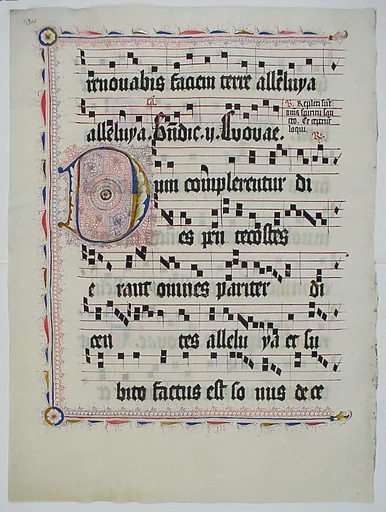 renouabis faciem terre alleluya
alleluya. Bndic. y. Evovae.
R. Repleti sūt
om̄s spiritu san
cto. Et ceperūt
loqui.
Dum complerentur di
es pen tecostes
e rant omnes pariter di
cen tes allelu ya et su
bito factus est so nus de ce